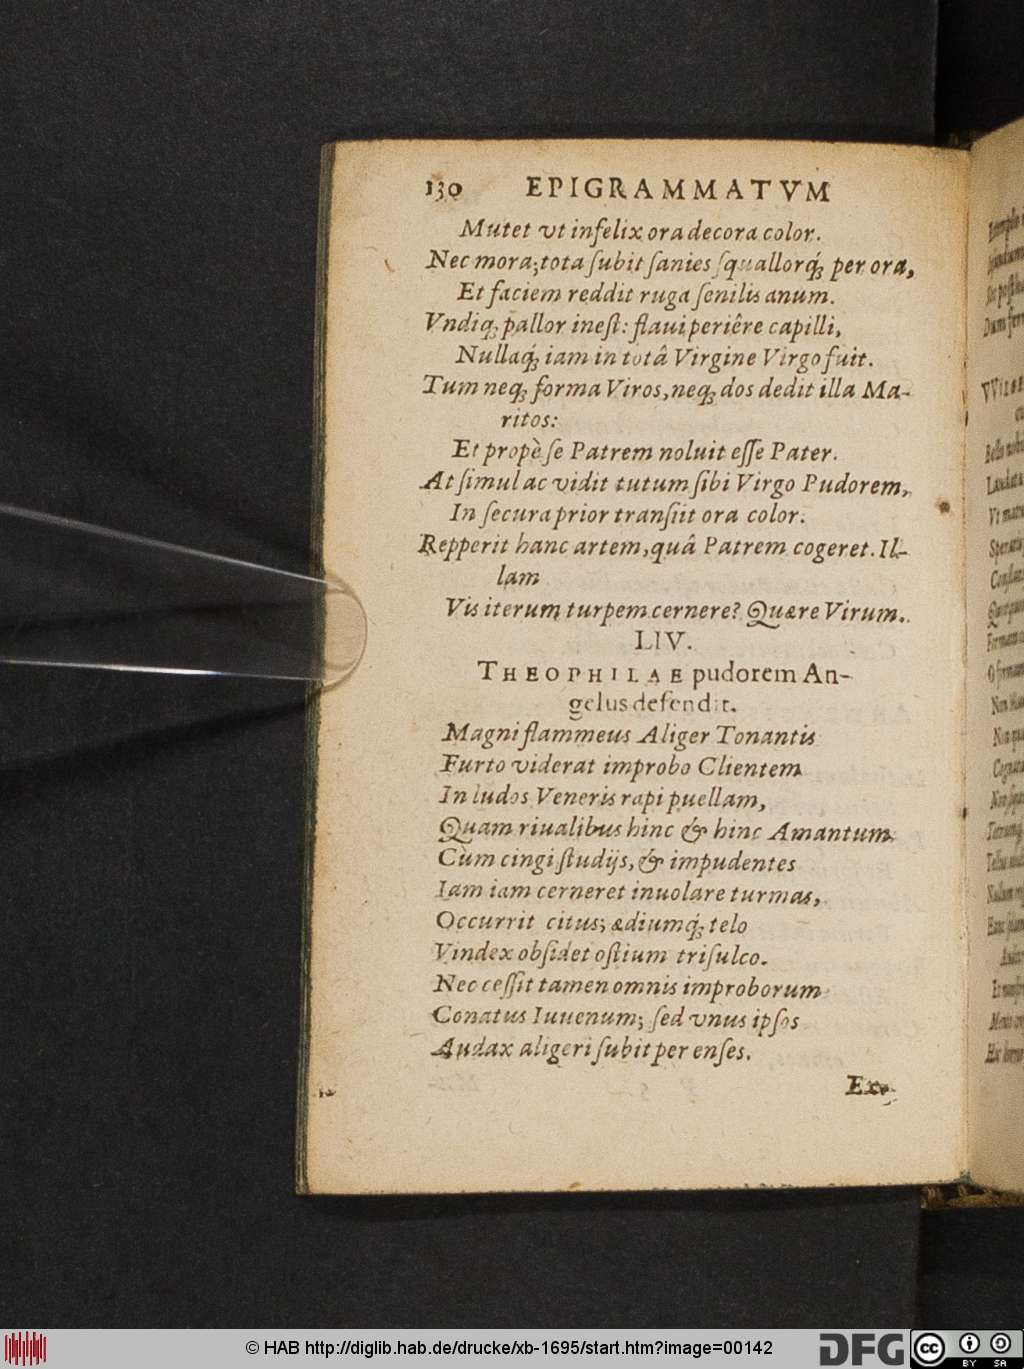 130 EPIGRAMMATVM
Mutet vt infelix ora decora color.
Nec mora; tota ſubit ſanies ſquallorq́; per ora,
Et faciem reddit ruga ſenilis anum.
Vndiq; pallor ineſt: flaui periêre capilli,
Nullaq́; iam in totâ Virgine Virgo fuit.
Tum neq; forma Viros, neq; dos dedit illa Ma-
ritos:
Et propè ſe Patrem noluit eſſe Pater.
At ſimul ac vidit tutum ſibi Virgo Pudorem,
In ſecura prior tranſiit ora color.
Repperit hanc artem, quâ Patrem cogeret. Il-
lam
Vis iterum turpem cernere? Quære Virum.
LIV.
THEOPHILAE pudorem An-
gelus defendit.
Magni flammeus Aliger Tonantis
Furto viderat improbo Clientem
In ludos Veneris rapi puellam,
Quam riualibus hinc & hinc Amantum
Cùm cingi ſtudijs, & impudentes
Iam iam cerneret inuolare turmas,
Occurrit citus; ædiumq́; telo
Vindex obſidet oſtium triſulco.
Nec ceſſit tamen omnis improborum
Conatus Iuuenum; ſed vnus ipſos
Audax aligeri ſubit per enſes.
© HAB http://diglib.hab.de/drucke/xb-1695/start.htm?image=00142
DFG
cc
BY SA